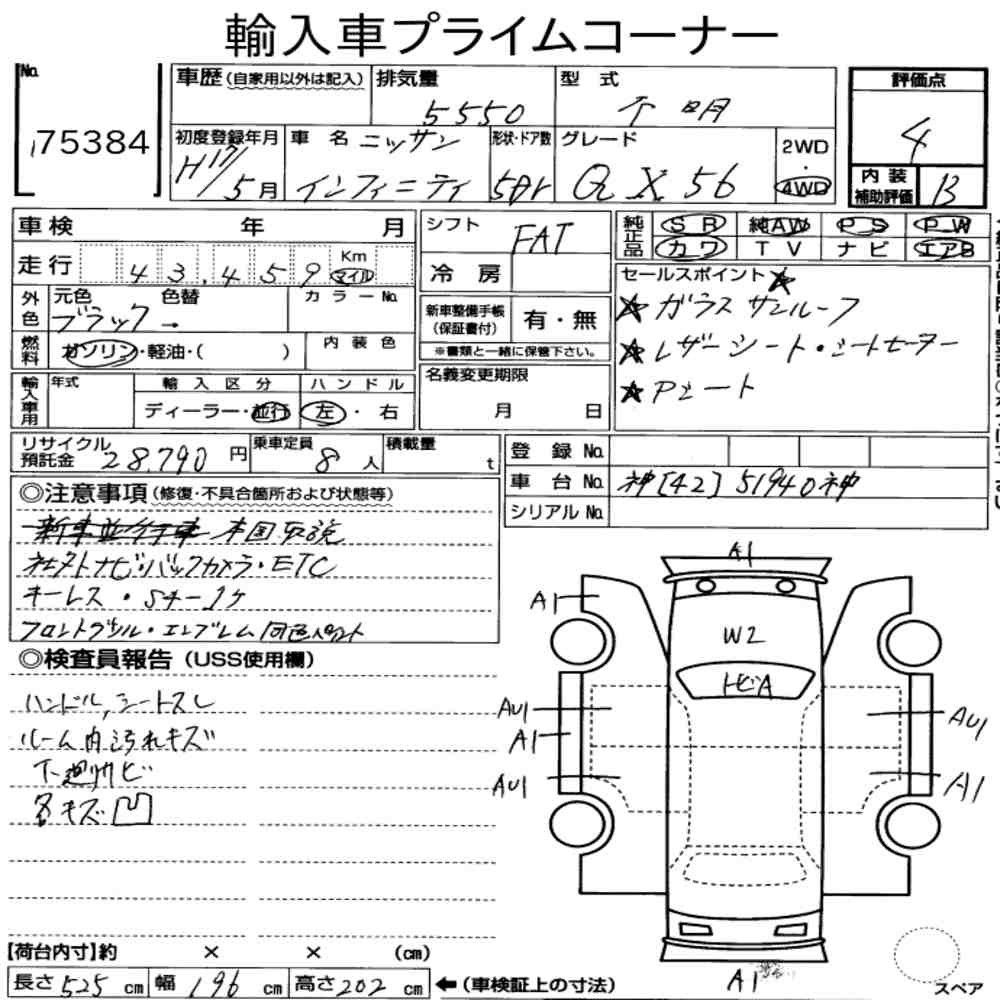 輸入車プライムコーナー
No.
175384
車歴(自家用以外は記入)
排気量
5550
型式
不明
評価点
4
初度登録年月
H17/5月
車名 ニッサン
インフィニティ
形状・ドア数
5Dr
グレード
QX56
2WD
・
4WD
内装
補助評価
B
車検 年 月
シフト
FAT
純正品
SR 純AW PS PW
カワ TV ナビ エアB
走行 43,459 Km
マイル
冷房
セールスポイント★
★ガラスサンルーフ
★レザーシート・シートヒーター
★Pシート
外色
元色 色替
ブラック→
カラーNo.
新車整備手帳
(保証書付)
有・無
※書類と一緒に保管下さい。
燃料
ガソリン・軽油・( )
内装色
名義変更期限
月 日
輸入車用
年式
輸入区分
ハンドル
ディーラー・並行
左・右
リサイクル
預託金
28,790円
乗車定員
8人
積載量
t
登録No.
車台No. 神[42]51940神
シリアルNo.
◎注意事項(修復・不具合箇所および状態等)
新車並行車 本国取説
社外ナビ・バックカメラ・ETC
キーレス・Sキー1ケ
フロントグリル・エンブレム同色ペイント
◎検査員報告(USS使用欄)
ハンドル,シートスレ
ルーム内汚れキズ
下廻サビ
各キズ凹
A1
A1
W2
トビA
AU1
A1
AU1
AU1
A1
A1
スペア
【荷台内寸】約 × × (cm)
長さ525cm 幅196cm 高さ202cm ←(車検証上の寸法)